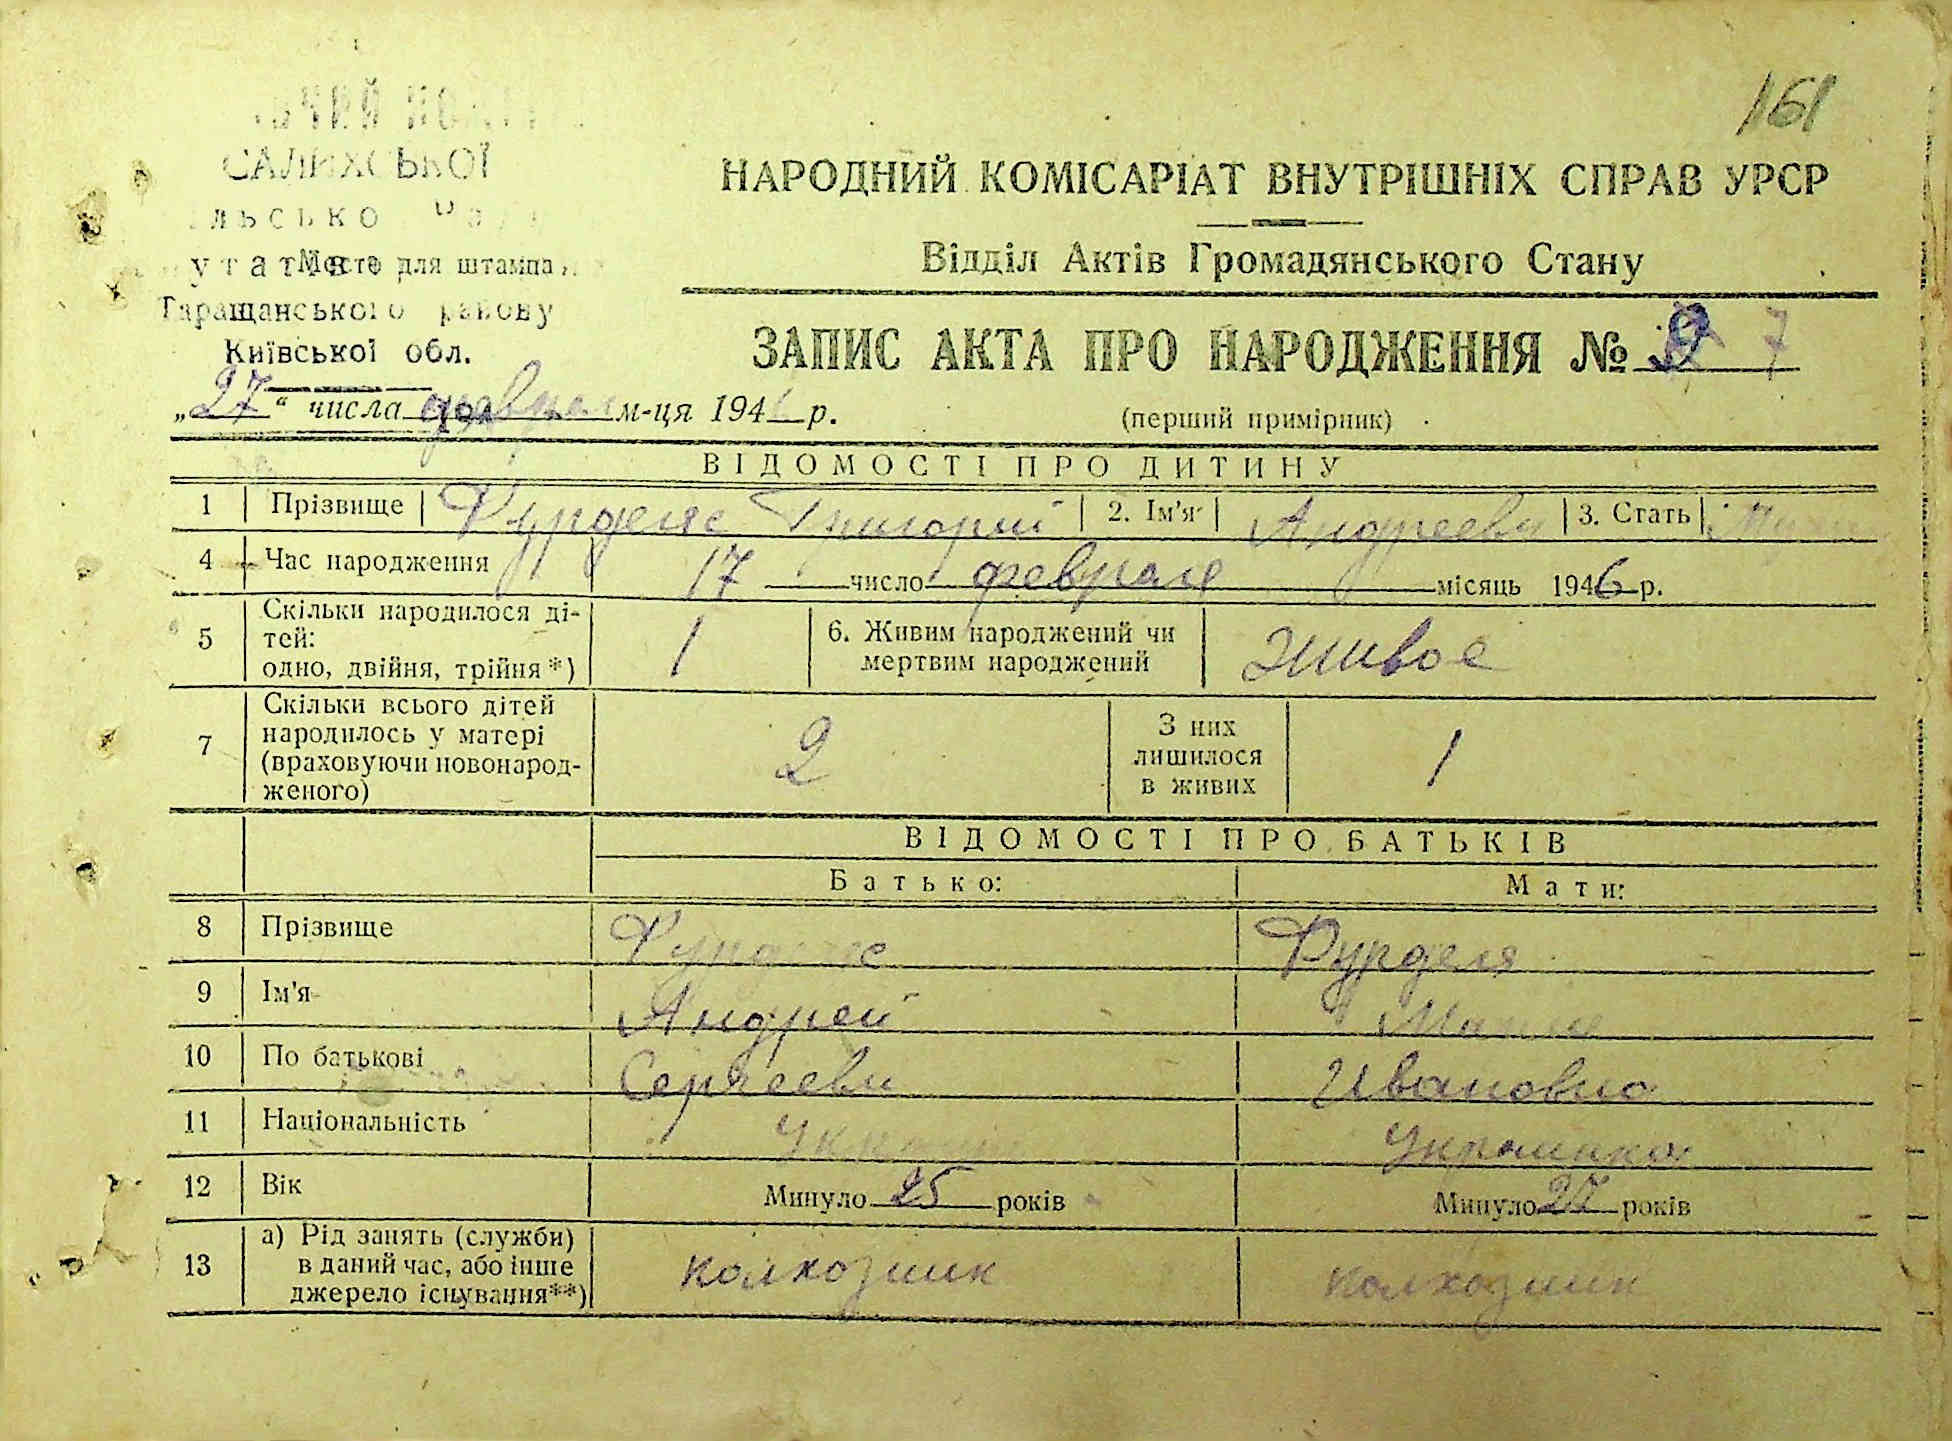 161
САЛИХСЬКОЇ
Место для штампа
Таращанського району
Київської обл.
„27“ числа февраля м-ця 194 р.
НАРОДНИЙ КОМІСАРІАТ ВНУТРІШНІХ СПРАВ УРСР
Відділ Актів Громадянського Стану
ЗАПИС АКТА ПРО НАРОДЖЕННЯ № 7
(перший примірник)
ВІДОМОСТІ ПРО ДИТИНУ
1 Прізвище Фурделя Григорий 2. Ім'я Андреевич 3. Стать
4 Час народження 17 число февраля місяць 1946 р.
5 Скільки народилося ді-
тей:
одно, двійня, трійня*) 1 6. Живим народжений чи
мертвим народжений Живое
7 Скільки всього дітей
народилось у матері
(враховуючи новонарод-
женого) 2 З них
лишилося
в живих 1
ВІДОМОСТІ ПРО БАТЬКІВ
Батько: Мати:
8 Прізвище Фурделя Фурделя
9 Ім'я Андрей
10 По батькові Сергеевич Ивановна
11 Національність Украинка
12 Вік Минуло 25 років Минуло 27 років
13 а) Рід занять (служби)
в даний час, або інше
джерело існування**) колхозник колхозник